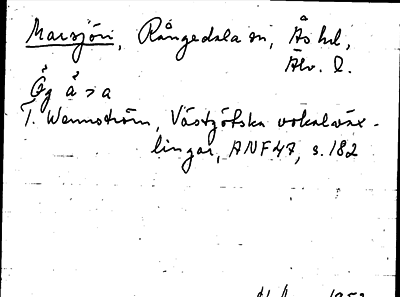 Marsjön, Rångedala sn, Ås hd,
Älv. l.
Ög å > a
T. Wennström, Västgötska vokalväx-
lingar, ANF 47, s. 182